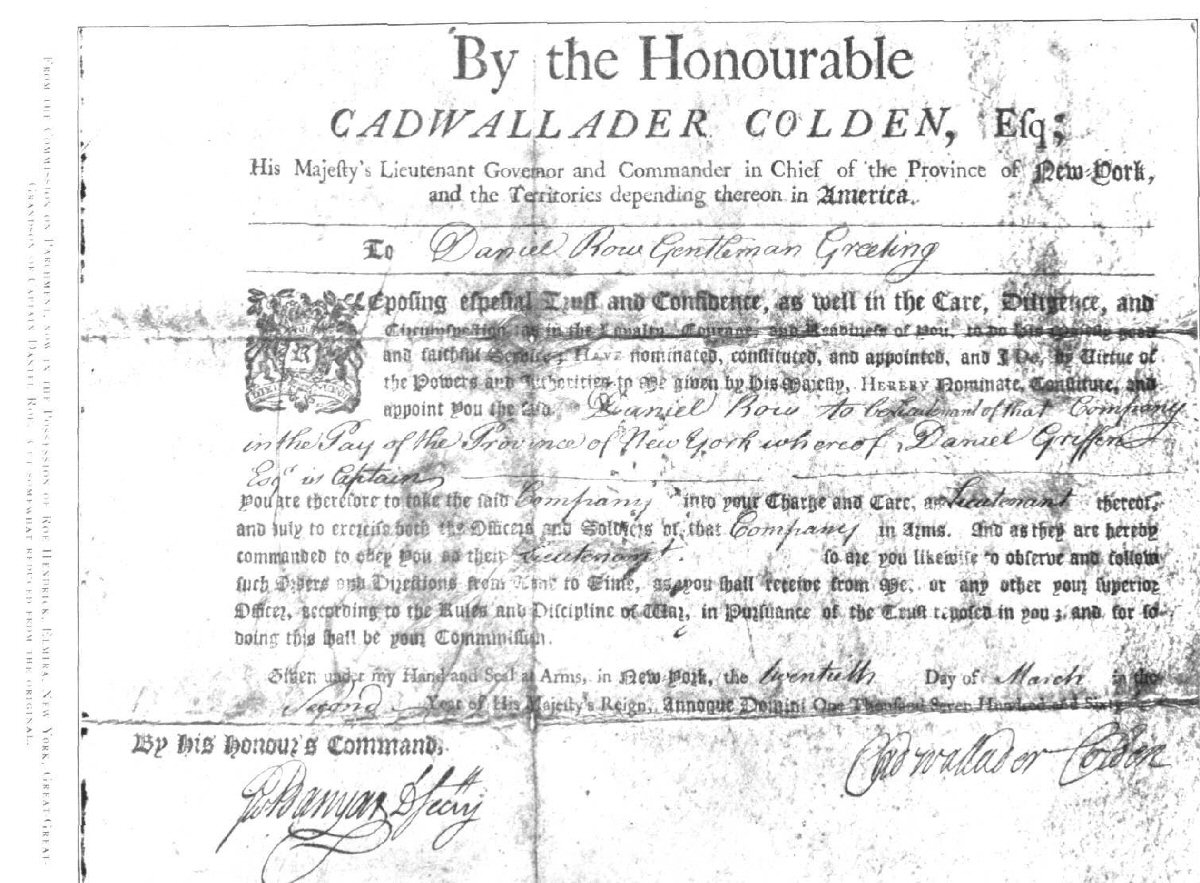 By the Honourable
CADWALLADER COLDEN, Eſq;
His Majeſty's Lieutenant Governor and Commander in Chief of the Province of New-York,
and the Territories depending thereon in America.
To Daniel Row Gentleman Greeting
Repoſing eſpecial Truſt and Confidence, as well in the Care, Diligence, and
Circumſpection, as in the Loyalty, Courage, and Readineſs of you, to do His Majeſty good
and faithful Service; HAVE nominated, conſtituted, and appointed, and I Do, by Virtue of
the Powers and Authorities to Me given by His Majeſty, HEREBY Nominate, Conſtitute, and
appoint You the ſaid Daniel Row to be Lieutenant of that Company
in the Pay of the Province of New York whereof Daniel Griffen
Esqr is Captain
You are therefore to take the ſaid Company into your Charge and Care, as Lieutenant thereof,
and duly to exerciſe both the Officers and Soldiers of that Company in Arms. And as they are hereby
commanded to obey you as their Lieutenant ſo are you likewiſe to obſerve and follow
ſuch Orders and Directions from Time to Time, as you ſhall receive from Me, or any other your ſuperior
Officer, according to the Rules and Diſcipline of War, in Purſuance of the Truſt repoſed in you; and for ſo
doing this ſhall be your Commiſſion.
Given under my Hand and Seal at Arms, in New-York, the twentieth Day of March in the
Second Year of His Majeſty's Reign, Annoque Domini One Thouſand Seven Hundred and Sixty
By His Honour's Command,
Cadwallader Colden
Banyar D Secry
FROM THE COMMISSION ON PARCHMENT, NOW IN THE POSSESSION OF ROE HENDRICK, ELMIRA, NEW YORK, GREAT GREAT
GRANDSON OF CAPTAIN DANIEL ROE. A CUT SOMEWHAT REDUCED FROM THE ORIGINAL.